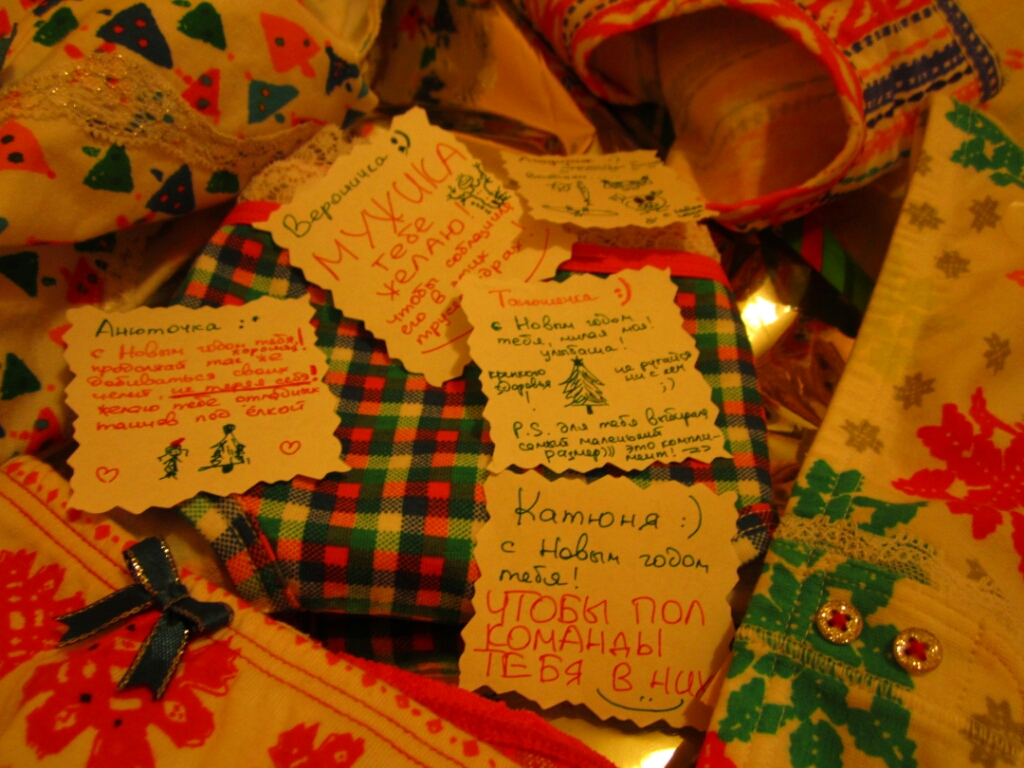 Вероничка ;)
МУЖИКА
тебе
желаю!
чтобы соблазнила
его в этих
трусо
Анюточка :*
с Новым годом тебя!
хорошая!
продолжай так же
добиваться своих
целей, не теряя себя!
желаю тебе отличных
танцев под ёлкой
Танюшечка :)
с Новым годом
тебя, милая моя!
улыбаша!
крепкого
здоровья!
не ругайся
ни с кем
;)
P.S. для тебя выбирала
самый маленький
размер))) это компли-
мент!
Катюня :)
с Новым годом
тебя!
ЧТОБЫ ПОЛ
КОМАНДЫ
ТЕБЯ В НИХ